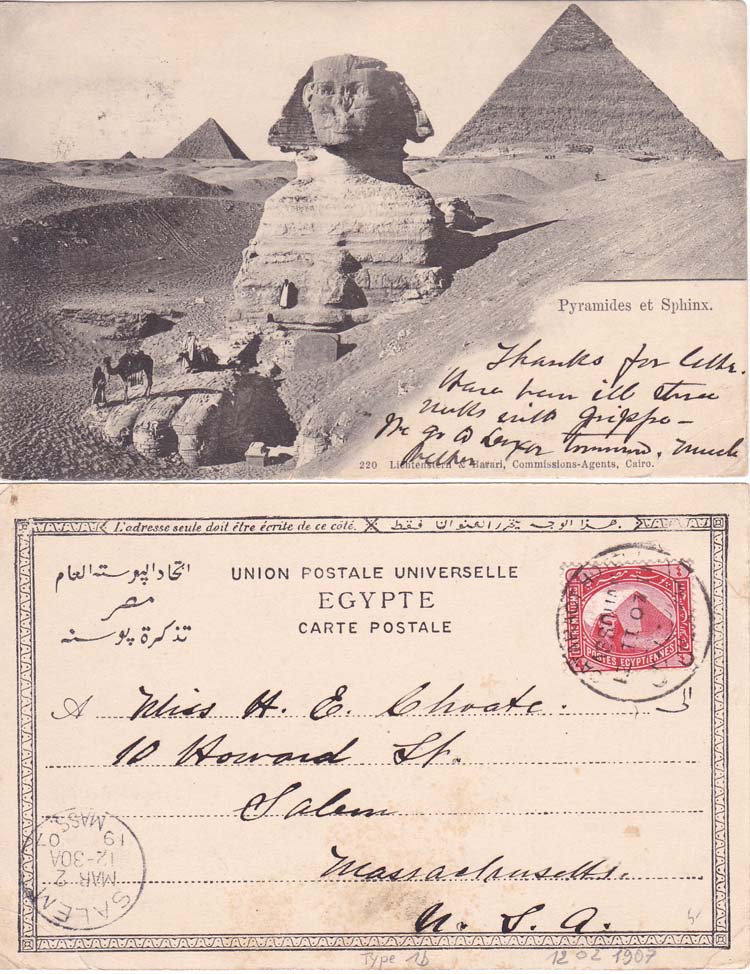 Pyramides et Sphinx.
Thanks for letter.
Have been ill three
weeks with Grippe –
We go to Luxor tomorrow. Much
better
220 Lichtenstern & Harari, Commissions-Agents, Cairo.
L'adresse seule doit être écrite de ce côté. هذا الوجه يتحرر العنوان فقط.
اتحاد البوسته العام
مصر
تذكرة بوسته
UNION POSTALE UNIVERSELLE
EGYPTE
CARTE POSTALE
POSTES EGYPTIENNES
07
A Miss H. E. Choate.
الى
10 Howard St.
Salem
Massachusetts.
U. S. A.
SALEM
MAR 2
12-30A
19 07
MASS.
Type 1b
12 02 1907